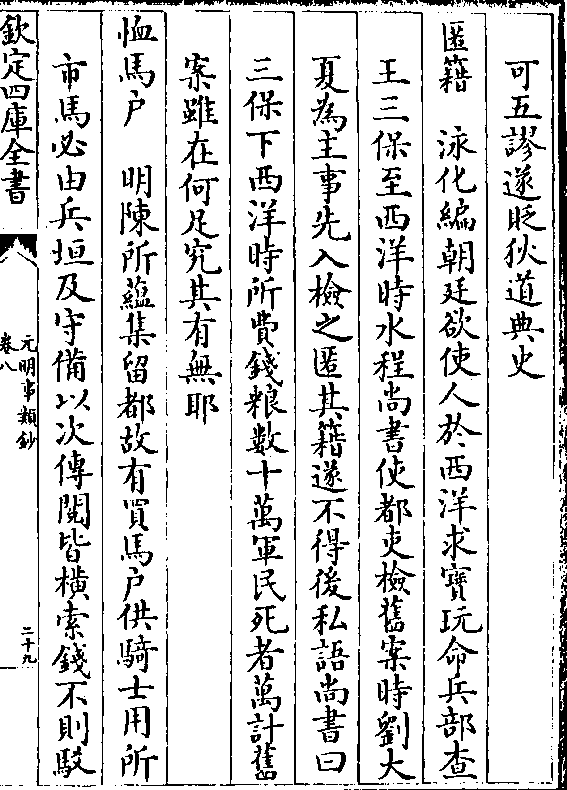 可五謬遂貶狄道典史
匿籍　泳化編朝廷欲使人於西洋求寳玩命兵部查
王三保至西洋時水程尚書使都吏檢舊案時劉大
夏為主事先入檢之匿其籍遂不得後私語尚書曰
三保下西洋時所費錢粮數十萬軍民死者萬計舊
案雖在何足究其有無耶
恤馬户　明陳所藴集留都故有買馬户供騎士用所
市馬必由兵垣及守備以次傳閱皆橫索錢不則駁
欽定四庫全書
元明事類鈔
卷八
二十九